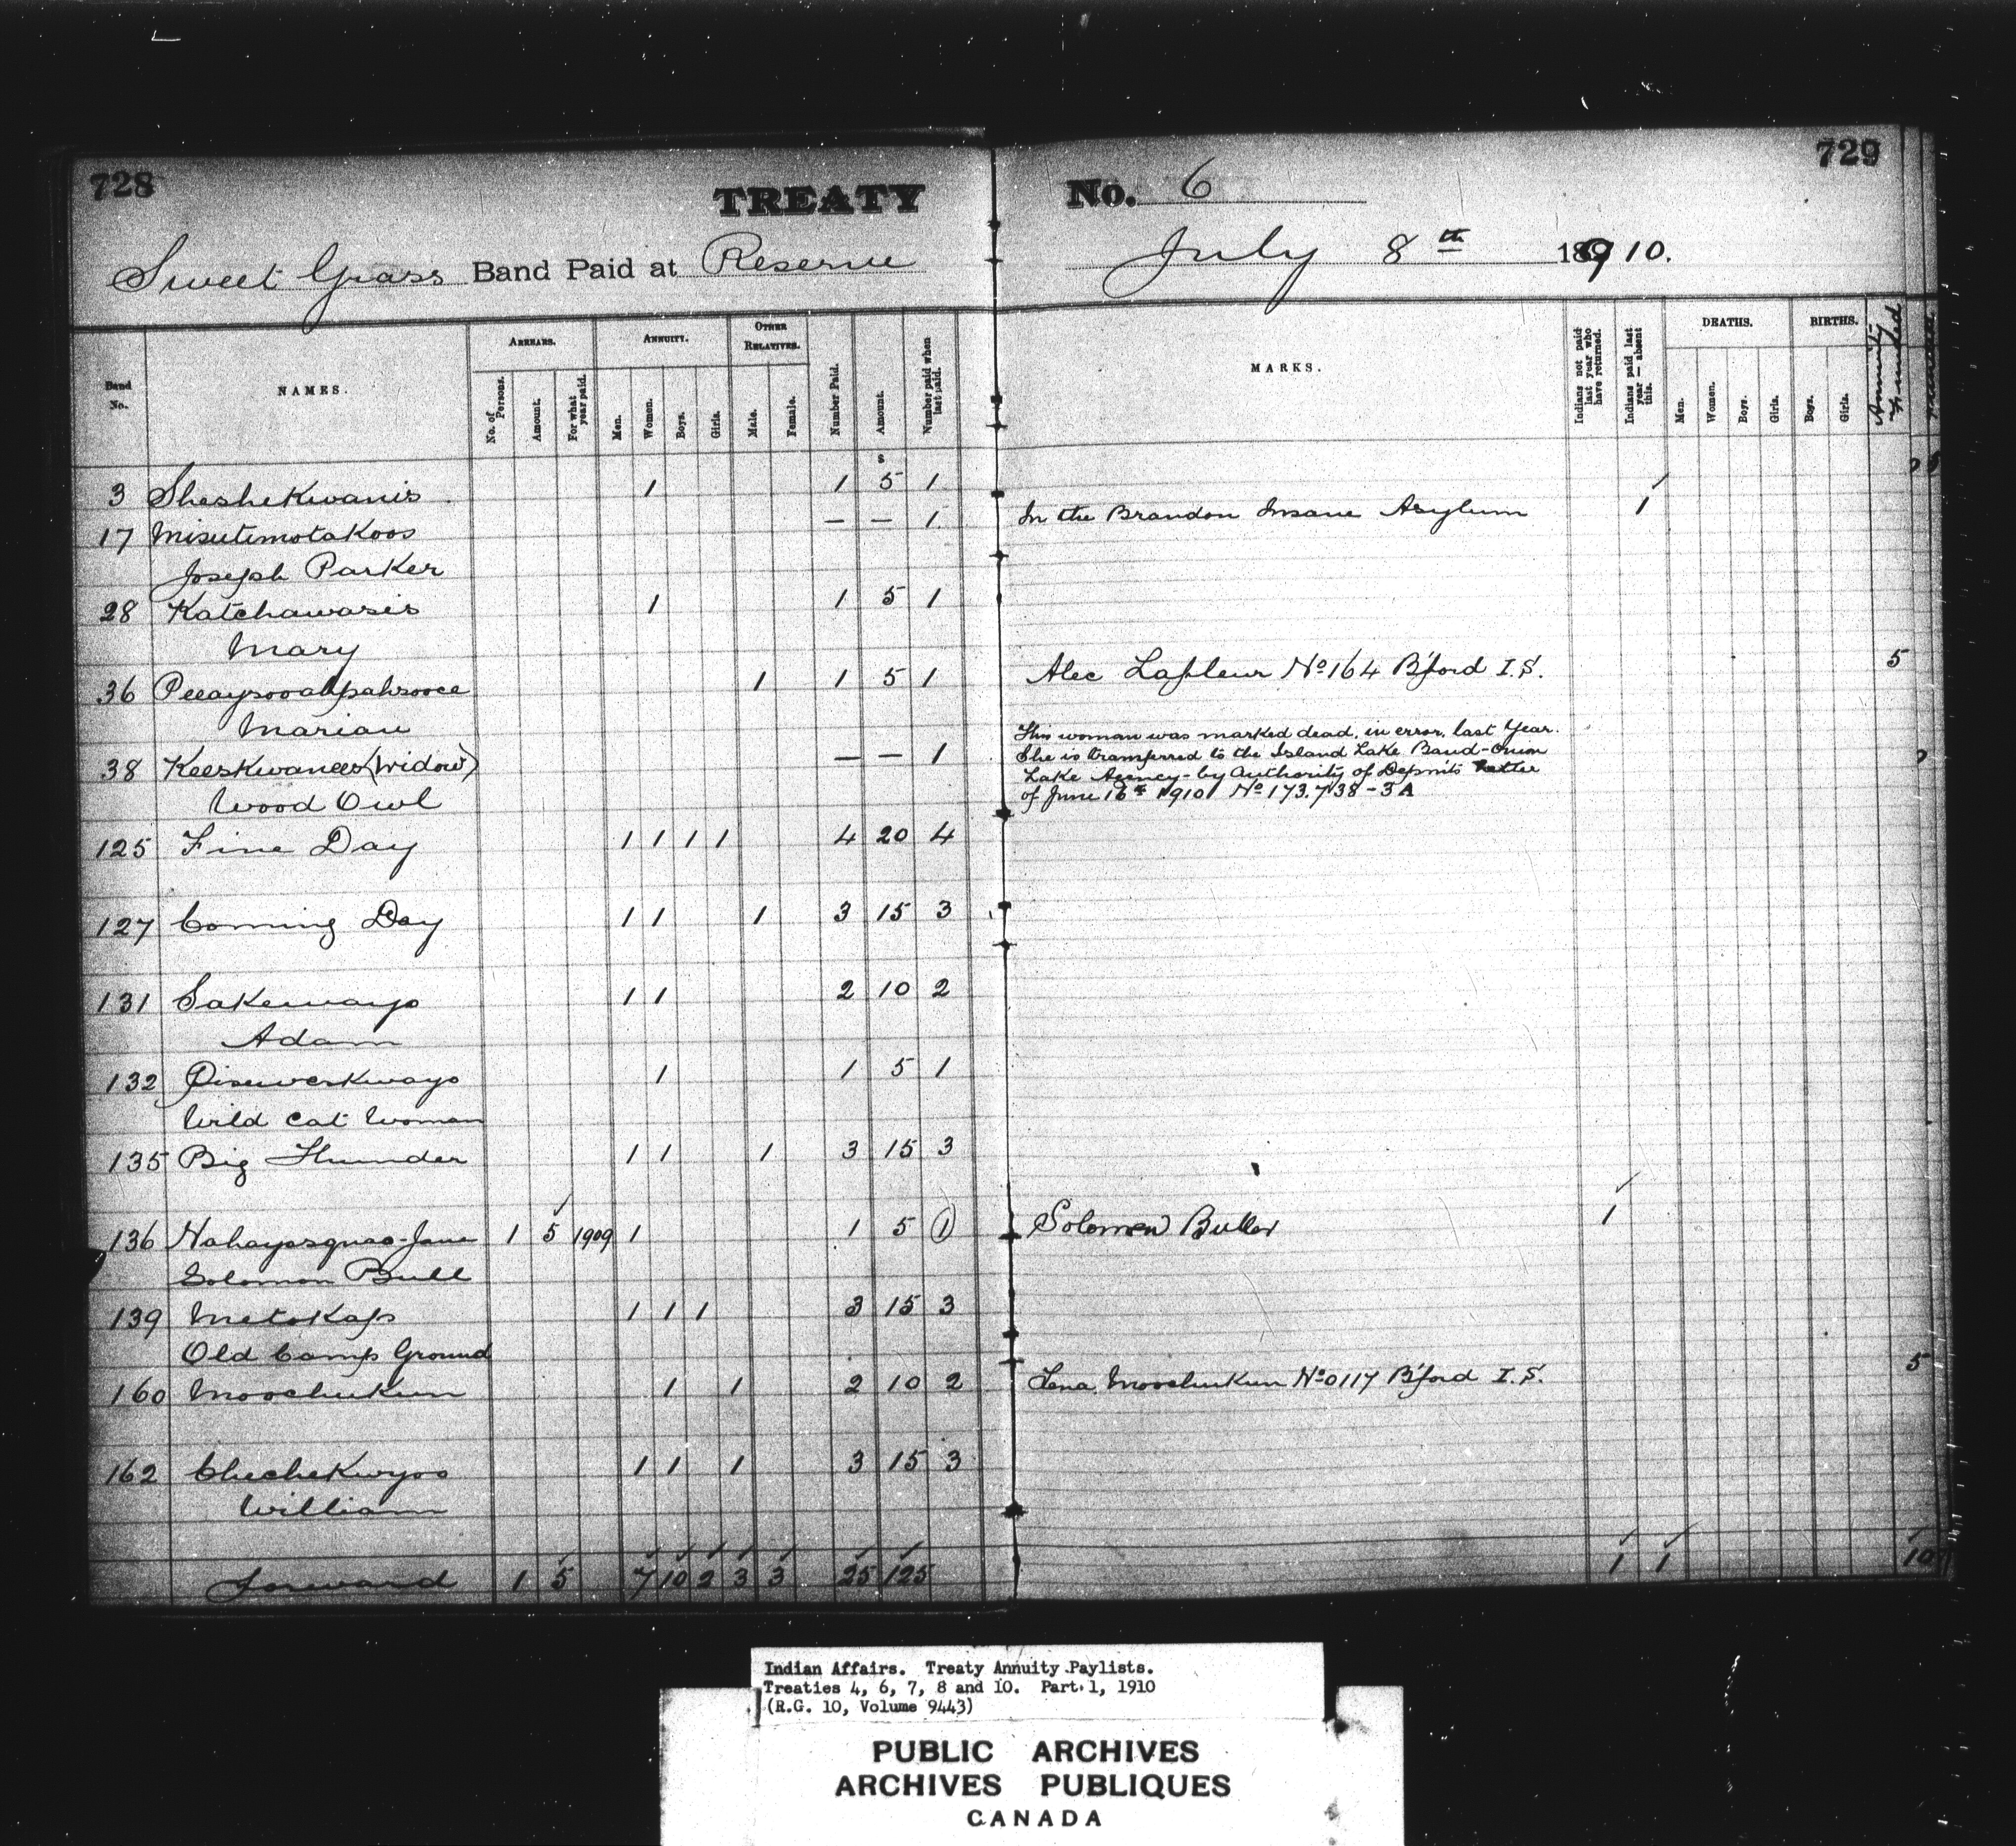 728
729
TREATY No. 6
Sweet Grass Band Paid at Reserve July 8th 18910.
Band No.
NAMES.
ARREARS.
No. of Persons.
Amount.
For what year paid.
ANNUITY.
Men.
Women.
Boys.
Girls.
OTHER RELATIVES.
Male.
Female.
Number Paid.
Amount.
Number paid when last paid.
MARKS.
Indians not paid last year who have returned.
Indians paid last year — absent this.
DEATHS.
Men.
Women.
Boys.
Girls.
BIRTHS.
Boys.
Girls.
Annuity
$
3 Sheshekwanis 1 1 5 1
17 Misutimotakoos — — 1 In the Brandon Insane Asylum 1
Joseph Parker
28 Katchawasis 1 1 5 1
Mary
36 1 1 5 1 Alec Lafleur No 164 B'ford I.S. 5
Marian
38 Keeskwanees (Widow) — — 1
Wood Owl
This woman was marked dead, in error, last Year.
She is transferred to the Island Lake Band-Onion
Lake Agency - by Authority of Depmts letter
of June 16th 1910 No 173.738-3A
125 Fine Day 1 1 1 1 4 20 4
127 Coming Day 1 1 1 3 15 3
131 Sakewayo 1 1 2 10 2
Adam
132 Pisuweskwayo 1 1 5 1
Wild Cat Woman
135 Big Thunder 1 1 1 3 15 3
136 Nahayasquao-Jane 1 5 1909 1 1 5 1 Solomon Buller 1
Solomon Bull
139 Metokap 1 1 1 3 15 3
Old Camp Ground
160 Moochukun 1 1 2 10 2 Lena Moochukun No 0117 B'ford I.S. 5
162 Chechekwyoo 1 1 1 3 15 3
William
Forward 1 5 7 10 2 3 3 25 125 1 1 10
Indian Affairs. Treaty Annuity Paylists.
Treaties 4, 6, 7, 8 and 10. Part 1, 1910
(R.G. 10, Volume 9443)
PUBLIC ARCHIVES
ARCHIVES PUBLIQUES
CANADA